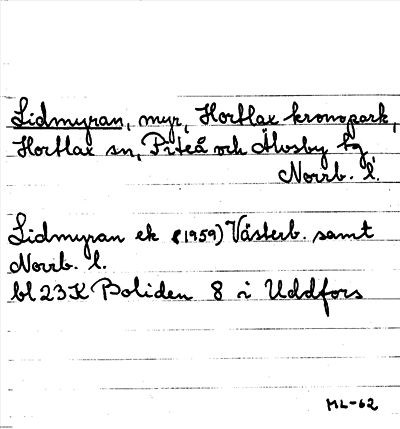 Lidmyran, myr, Hortlax kronopark,
Hortlax sn, Piteå och Älvsby tg
Norrb. l.
Lidmyran ek (1959) Västerb. samt
Norrb. l.
bl 23K Boliden 8 i Uddfors
ML-62